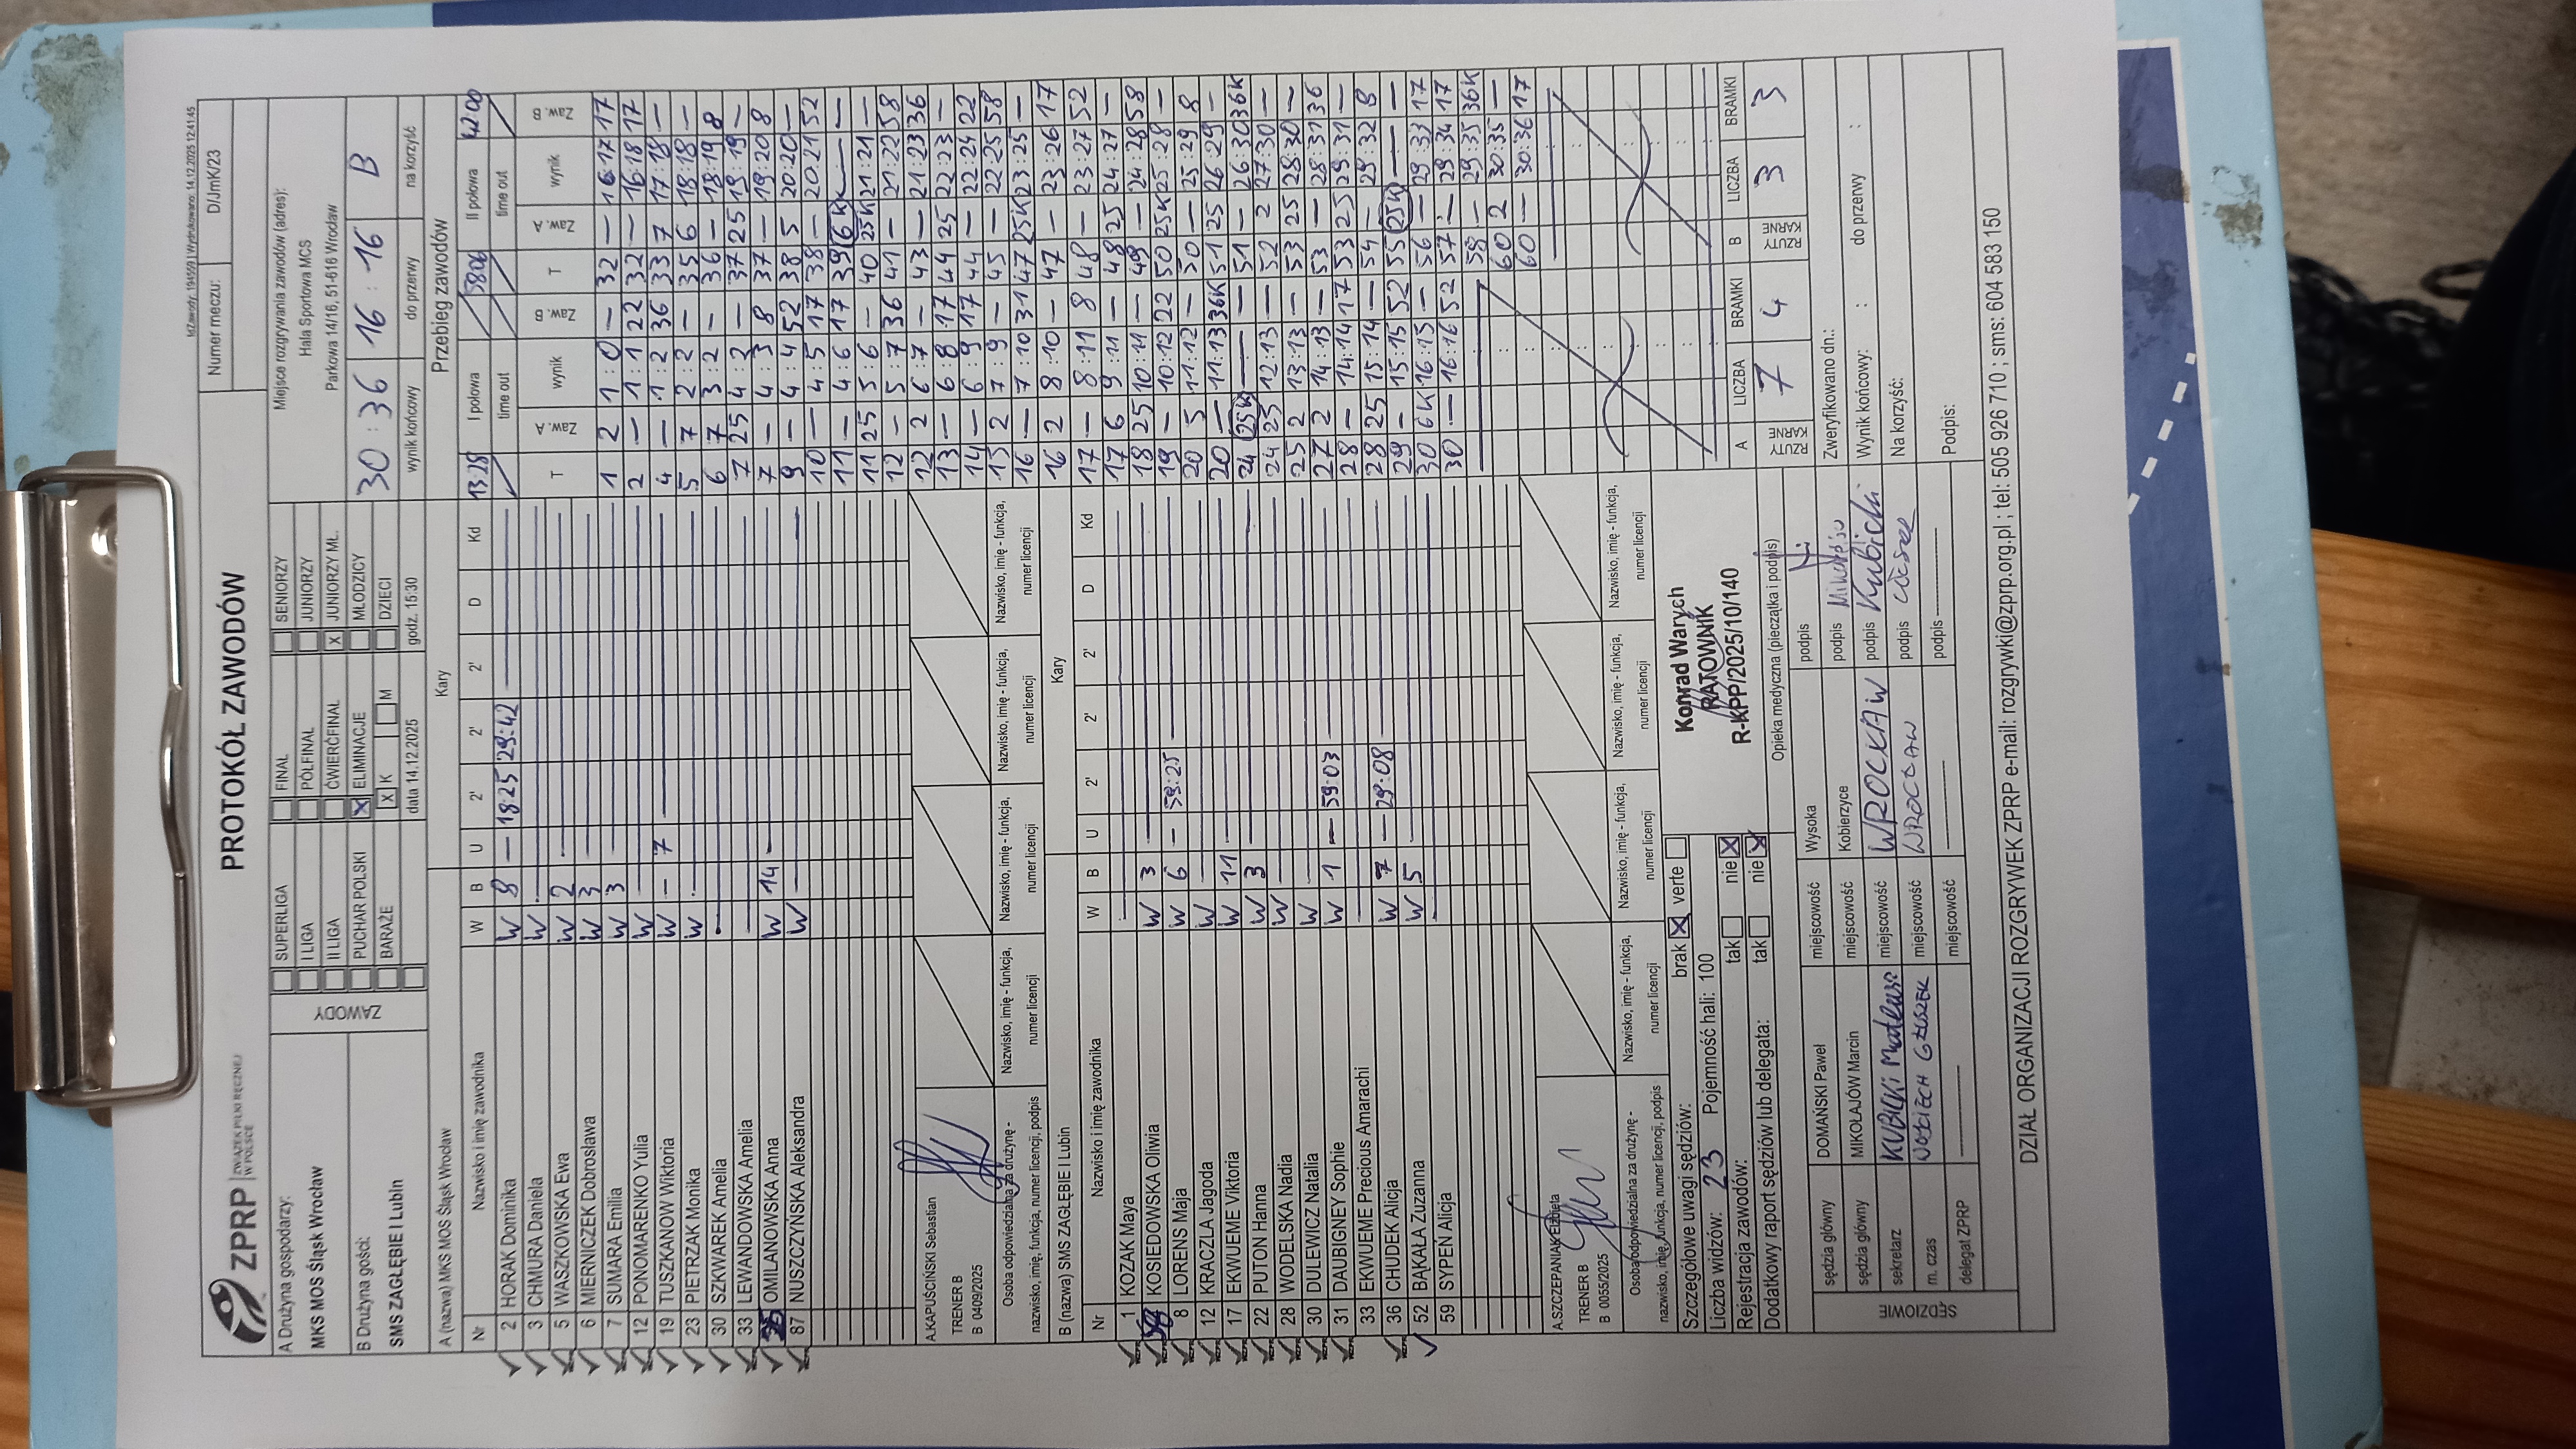 IdZawody: 194559 | Wydrukowano: 14.12.2025 12:41:45
ZPRP ZWIĄZEK PIŁKI RĘCZNEJ W POLSCE
PROTOKÓŁ ZAWODÓW
Numer meczu: D/JmK/23
A Drużyna gospodarzy:
MKS MOS Śląsk Wrocław
B Drużyna gości:
SMS ZAGŁĘBIE I Lubin
ZAWODY
SUPERLIGA FINAŁ SENIORZY
I LIGA PÓŁFINAŁ JUNIORZY
II LIGA ĆWIERĆFINAŁ X JUNIORZY MŁ.
PUCHAR POLSKI X ELIMINACJE MŁODZICY
BARAŻE X K M DZIECI
data 14.12.2025 godz. 15:30
Miejsce rozgrywania zawodów (adres):
Hala Sportowa MCS
Parkowa 14/16, 51-616 Wrocław
30 : 36 16 : 16 B
wynik końcowy do przerwy na korzyść
A (nazwa) MKS MOS Śląsk Wrocław Kary
Nr Nazwisko i imię zawodnika W B U 2' 2' 2' D Kd
2 HORAK Dominika W 8 — 18:25 29:42
3 CHMURA Daniela W
5 WASZKOWSKA Ewa W 2
6 MIERNICZEK Dobrosława W 3
7 SUMARA Emilia W 3
12 PONOMARENKO Yulia W
19 TUSZKANOW Wiktoria W — 7
23 PIETRZAK Monika W
30 SZKWAREK Amelia
33 LEWANDOWSKA Amelia
OMILANOWSKA Anna W 14
87 NUSZCZYŃSKA Aleksandra W
A.KAPUŚCIŃSKI Sebastian
TRENER B
B 0409/2025
Osoba odpowiedzialna za drużynę -
nazwisko, imię, funkcja, numer licencji, podpis
Nazwisko, imię - funkcja, numer licencji
Nazwisko, imię - funkcja, numer licencji
Nazwisko, imię - funkcja, numer licencji
Nazwisko, imię - funkcja, numer licencji
B (nazwa) SMS ZAGŁĘBIE I Lubin Kary
Nr Nazwisko i imię zawodnika W B U 2' 2' 2' D Kd
1 KOZAK Maya
58 KOSIEDOWSKA Oliwia W 3
8 LORENS Maja W 6 — 59:25
12 KRACZLA Jagoda W
17 EKWUEME Viktoria W 11
22 PUTON Hanna W 3
28 WODELSKA Nadia W
30 DULEWICZ Natalia W
31 DAUBIGNEY Sophie W 1 — 59:03
33 EKWUEME Precious Amarachi
36 CHUDEK Alicja W 7 — 29:08
52 BĄKAŁA Zuzanna W 5
59 SYPEŃ Alicja
A.SZCZEPANIAK Elżbieta
TRENER B
B 0055/2025
Osoba odpowiedzialna za drużynę -
nazwisko, imię, funkcja, numer licencji, podpis
Nazwisko, imię - funkcja, numer licencji
Nazwisko, imię - funkcja, numer licencji
Nazwisko, imię - funkcja, numer licencji
Nazwisko, imię - funkcja, numer licencji
Przebieg zawodów
13:28 I połowa 58:06 II połowa 42:00
time out time out
T Zaw. A wynik Zaw. B T Zaw. A wynik Zaw. B
1 2 1:0 — 32 — 16:17 17
2 — 1:1 22 32 — 16:18 17
4 — 1:2 36 33 7 17:18 —
5 7 2:2 — 35 6 18:18 —
6 7 3:2 — 36 — 18:19 8
7 25 4:2 — 37 25 19:19 —
7 — 4:3 8 37 — 19:20 8
9 — 4:4 52 38 5 20:20 —
10 — 4:5 17 38 — 20:21 52
11 — 4:6 17 39 6K — —
11 25 5:6 — 40 25K 21:21 —
12 — 5:7 36 41 — 21:22 58
12 2 6:7 — 43 — 21:23 36
13 — 6:8 17 44 25 22:23 —
14 — 6:9 17 44 — 22:24 22
15 2 7:9 — 45 — 22:25 58
16 — 7:10 31 47 25K 23:25 —
16 2 8:10 — 47 — 23:26 17
17 — 8:11 8 48 — 23:27 52
17 6 9:11 — 48 25 24:27 —
18 25 10:11 — 49 — 24:28 58
19 — 10:12 22 50 25K 25:28 —
20 5 11:12 — 50 — 25:29 8
20 — 11:13 36K 51 25 26:29 —
24 25K — — 51 — 26:30 36K
24 25 12:13 — 52 2 27:30 —
25 2 13:13 — 53 25 28:30 —
27 2 14:13 — 53 — 28:31 36
28 — 14:14 17 53 25 29:31 —
28 25 15:14 — 54 — 29:32 8
29 — 15:15 52 55 25K — —
30 6K 16:15 — 56 — 29:33 17
30 — 16:16 52 57 — 29:34 17
58 — 29:35 36K
60 2 30:35 —
60 — 30:36 17
A RZUTY KARNE LICZBA BRAMKI B RZUTY KARNE LICZBA BRAMKI
7 4 3 3
Szczegółowe uwagi sędziów: brak X verte
Liczba widzów: 23 Pojemność hali: 100
Rejestracja zawodów: tak nie X
Dodatkowy raport sędziów lub delegata: tak nie X
Konrad Warych
RATOWNIK
R-KPP/2025/10/140
Opieka medyczna (pieczątka i podpis)
SĘDZIOWIE
sędzia główny DOMAŃSKI Paweł miejscowość Wysoka podpis
sędzia główny MIKOŁAJÓW Marcin miejscowość Kobierzyce podpis Mikołajów
sekretarz KUBICKI Mateusz miejscowość WROCŁAW podpis Kubicki
m. czas WOJCIECH GŁUSZEK miejscowość WROCŁAW podpis
delegat ZPRP miejscowość podpis
Zweryfikowano dn.:
Wynik końcowy: : do przerwy :
Na korzyść:
Podpis:
DZIAŁ ORGANIZACJI ROZGRYWEK ZPRP e-mail: rozgrywki@zprp.org.pl ; tel: 505 926 710 ; sms: 604 583 150